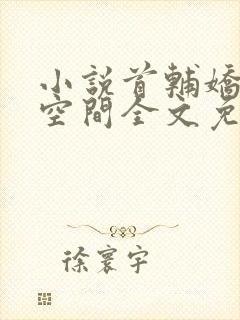 小說首輔嬌
空間全文免
徐寰宇